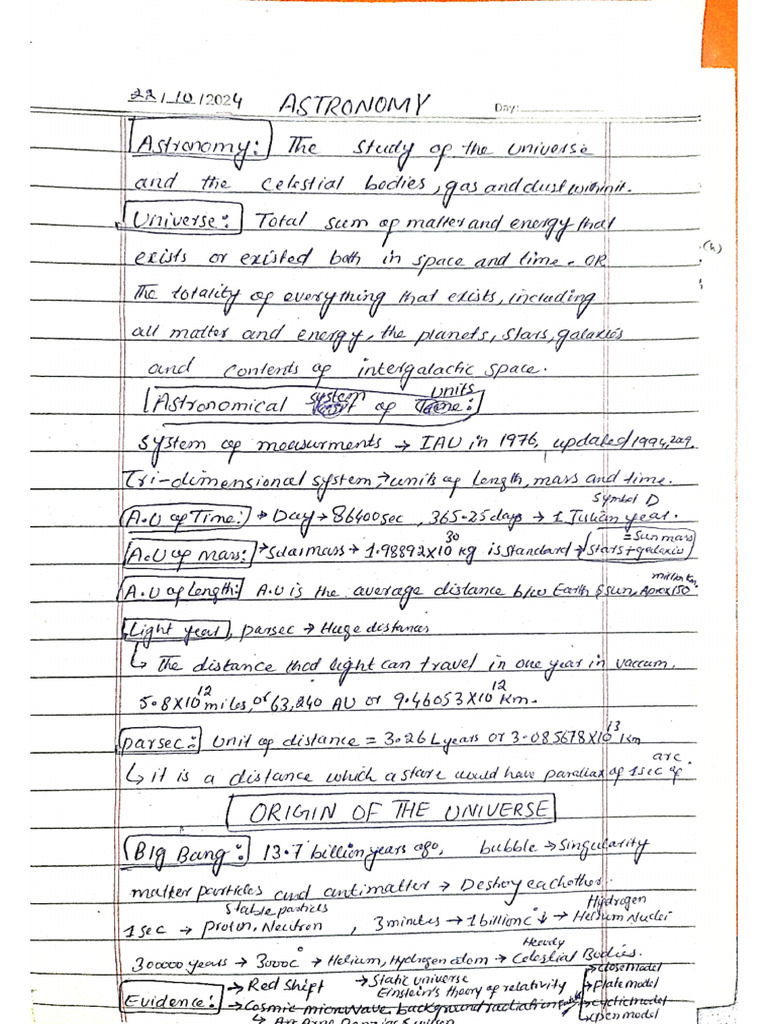 22/10/2024 ASTRONOMY Day:
Astronomy: The study of the universe
and the celestial bodies, gas and dust within it.
Universe: Total sum of matter and energy that
exists or existed both in space and time. OR
(h)
the totality of everything that exists, including
all matter and energy, the planets, stars, galaxies
and contents of intergalactic space.
Astronomical system of units:
system of measurments → IAU in 1976, updated 1994,
Tri-dimensional system, → units of length, mass and time.
Symbol D
A.U of Time: → Day → 86400sec, 365.25 days → 1 Julian year.
A.U of Mass: → Solar mass → 1.98892×10^30 kg is standard → = Sun mass
stars + galaxies
A.U of Length: A.U is the average distance b/w Earth & sun, Aprox 150 million km
Light year, parsec → Huge distances
↳ The distance that light can travel in one year in vaccum.
5.8×10^12 miles, or 63,240 AU or 9.46053×10^12 km.
parsec: Unit of distance = 3.26 L years or 3.085678×10^13 km
↳ it is a distance which a stare would have parallax of 1 sec of arc.
ORIGIN OF THE UNIVERSE
Big Bang: 13.7 billion years ago, bubble → Singularity
matter particles and antimatter → Destroy eachother.
Stable particles
1 sec → Proton, Neutron, 3 minutes → 1 billion C° ↓ → Hydrogen Helium Nuclei
300000 years → 3000C° → Helium, Hydrogen atom → Heavely Celestial Bodies.
Evidence: → Red Shift → Static universe
Einstein's theory of relativity
→ Cosmic microwave background radiation
→ Close model
→ Flate model
→ Cyclic model
→ Open model